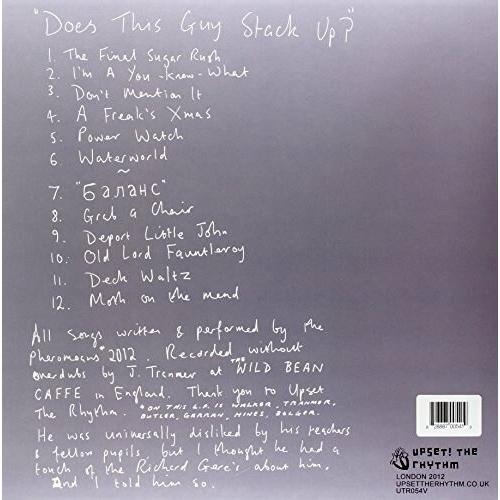 "Does This Guy Stack Up?"
1. The Final Sugar Rush
2. I'm A You-Know-What
3. Don't Mention It
4. A Freak's Xmas
5. Power Watch
6. Waterworld
~
7. "Баланс"
8. Grab a Chair
9. Deport Little John
10. Old Lord Fauntleroy
11. Deck Waltz
12. Moth on the mend
All songs written & performed by the
Pheromoans* 2012. Recorded without
overdubs by J. Tranmer at THE WILD BEAN
CAFFE in England. Thank you to Upset
The Rhythm. *ON THIS L.P. IS WALKER, TRANMER,
BUTLER, GARRAN, HINES, BOLGER.
He was universally disliked by his teachers
& fellow pupils but I thought he had a
touch of the Richard Gere's about him.
And I told him so.
UPSET! THE
RHYTHM
LONDON 2012
UPSETTHERHYTHM.CO.UK
UTR054V